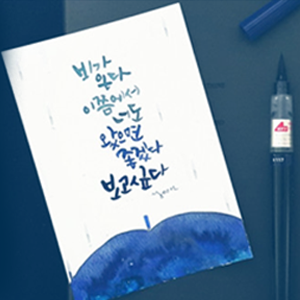 비가
온다
이쯤에서
너도
왔으면
좋겠다
보고싶다